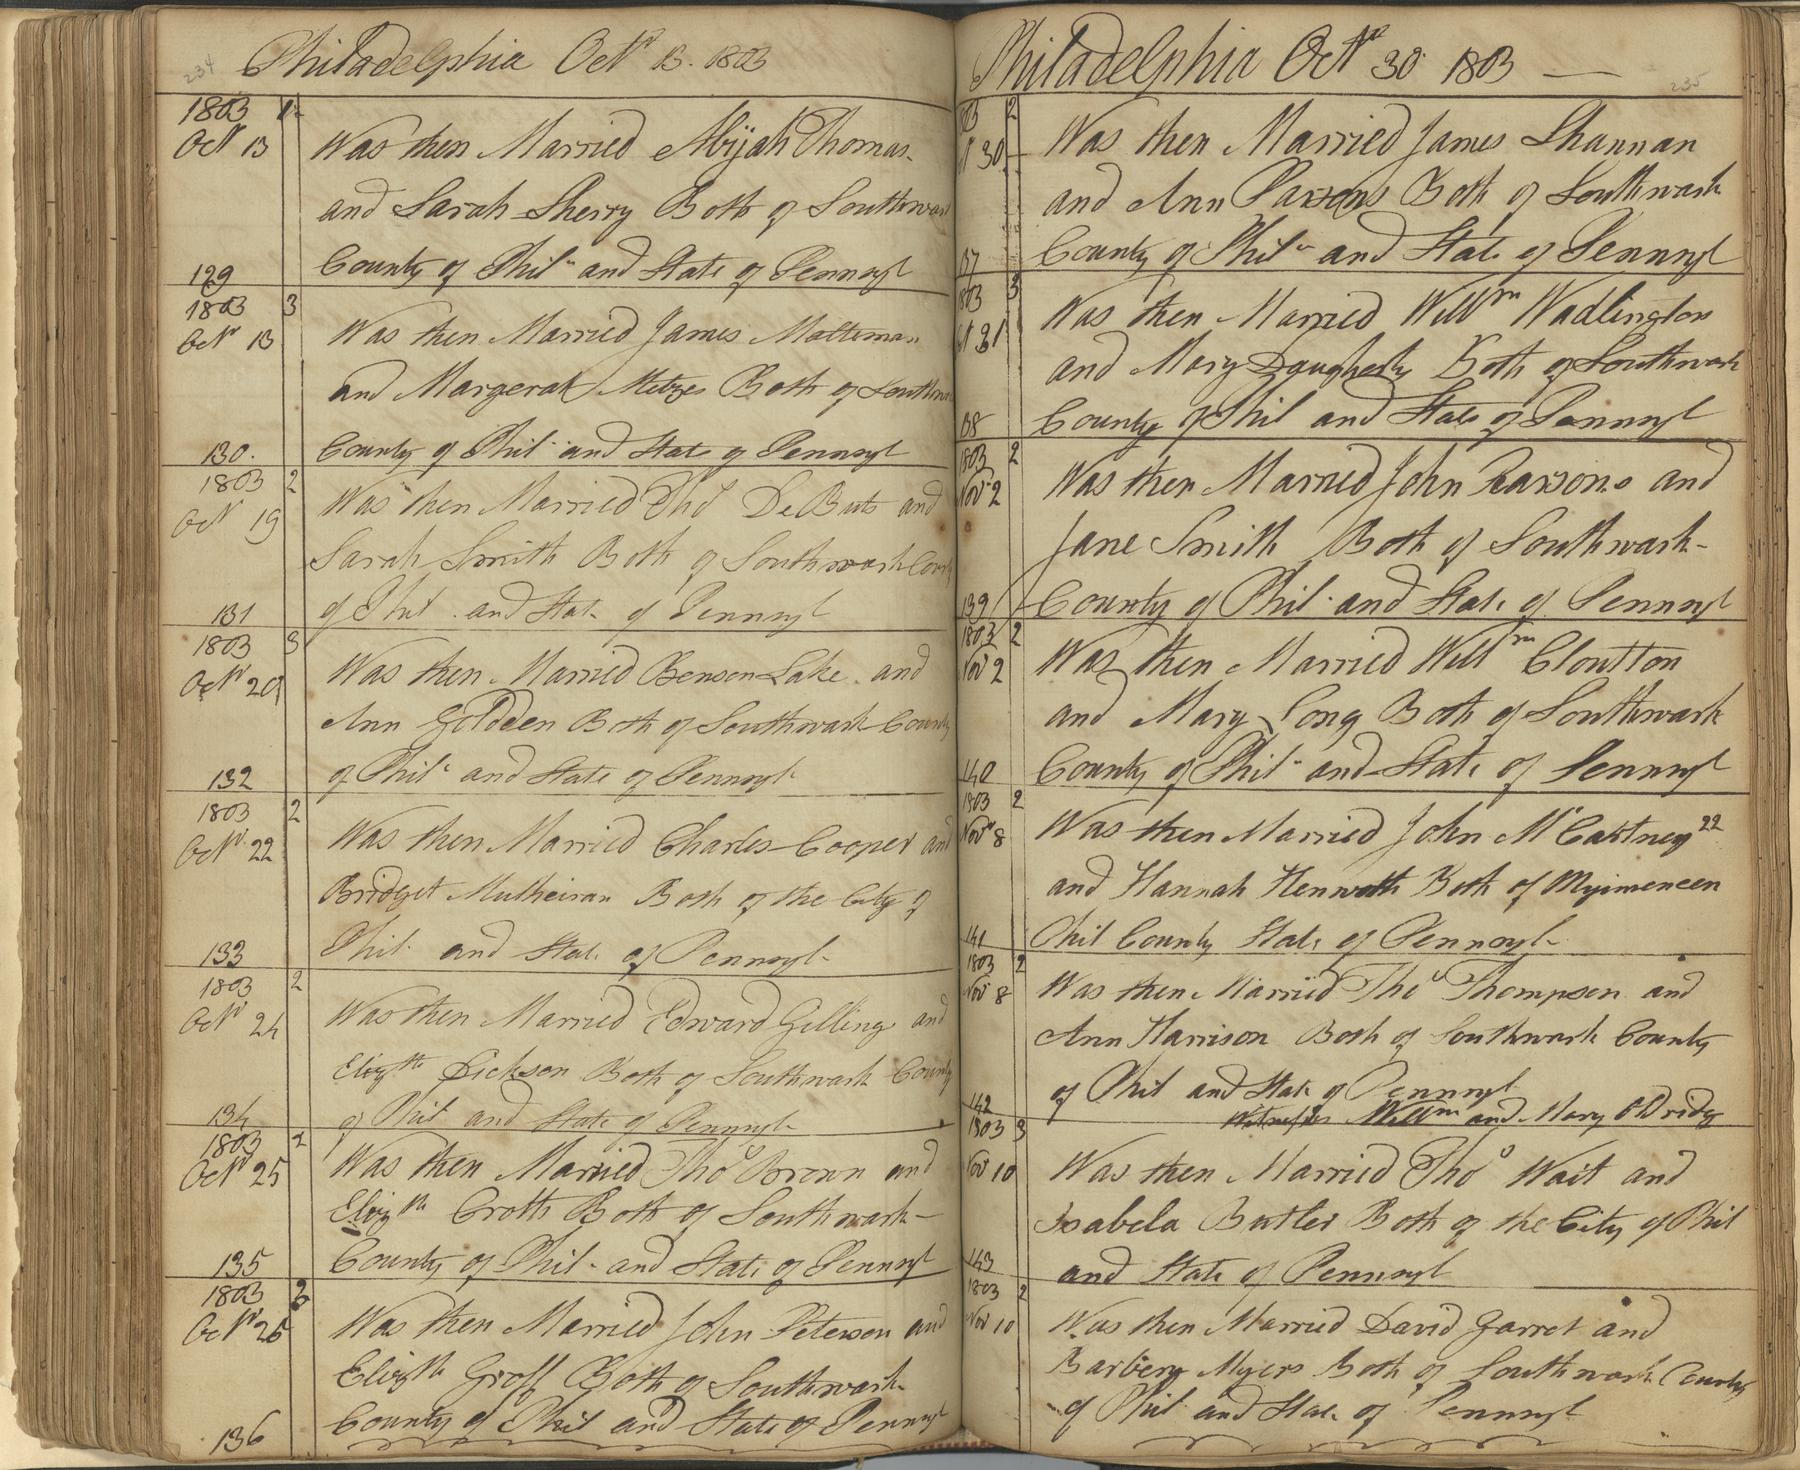 234
Philadelphia Octr 13. 1803
1803 1
Octr 13 Was then Married Abijah Thomas
and Sarah Sherry Both of Southwark
129 County of Phila and State of Pennsyl
1803 3
Octr 13 Was then Married James Molteman
and Margerat Metzes Both of Southwa
130. County of Phil and State of Pennsyl
1803 2
Octr 19 Was then Married Tho DeButs and
Sarah Smith Both of Southwark County
131 of Phil and State of Pennsyl
1803 3
Octr 20 Was then Married Benson Lake and
Ann Goldden Both of Southwark County
132 of Phila and State of Pennsyl
1803 2
Octr 22 Was then Married Charles Cooper and
Bridget Mulheiran Both of the City of
133 Phil and State of Pennsyl
1803 2
Octr 24 Was then Married Edward Gilling and
Elizth Dickson Both of Southwark County
134 of Phil and State of Pennsyl
1803 2
Octr 25 Was then Married Tho Brown and
Elizth Crotts Both of Southwark
135 County of Phil and State of Pennsyl
1803
Octr 26 Was then Married John Peterson and
Elizth Groff Both of Southwark
136 County of Phil and State of Pennsyl
Philadelphia Octr 30 1803
235
2
30 Was then Married James Shannan
and Ann Parsons Both of Southwark
137 County of Phila and State of Pennsyl
1803 3
31 Was then Married Willm Wadlington
and Mary Daugherty Both of Southwark
138 County of Phil and State of Pennsyl
1803 2
Nov 2 Was then Married John Parsons and
Jane Smith Both of Southwark
139 County of Phil and State of Pennsyl
1803 2
Nov 2 Was then Married Willm Cloutton
and Mary Long Both of Southwark
140 County of Phil and State of Pennsyl
1803 2
Novr 8 Was then Married John McCartney 22
and Hannah Kenworth Both of Myimeneen
141 Phil County State of Pennsyl
1803 2
Novr 8 Was then Married Tho Thompson and
Ann Harrison Both of Southwark County
142 of Phil and State of Pennsyl
Witnesses Willm and Mary Oldridg
1803 3
Nov 10 Was then Married Tho Wait and
Isabela Butler Both of the City of Phil
143 and State of Pennsyl
1803 2
Nov 10 Was then Married David Garret and
Barbery Myers Both of Southwark County
of Phil and State of Pennsyl